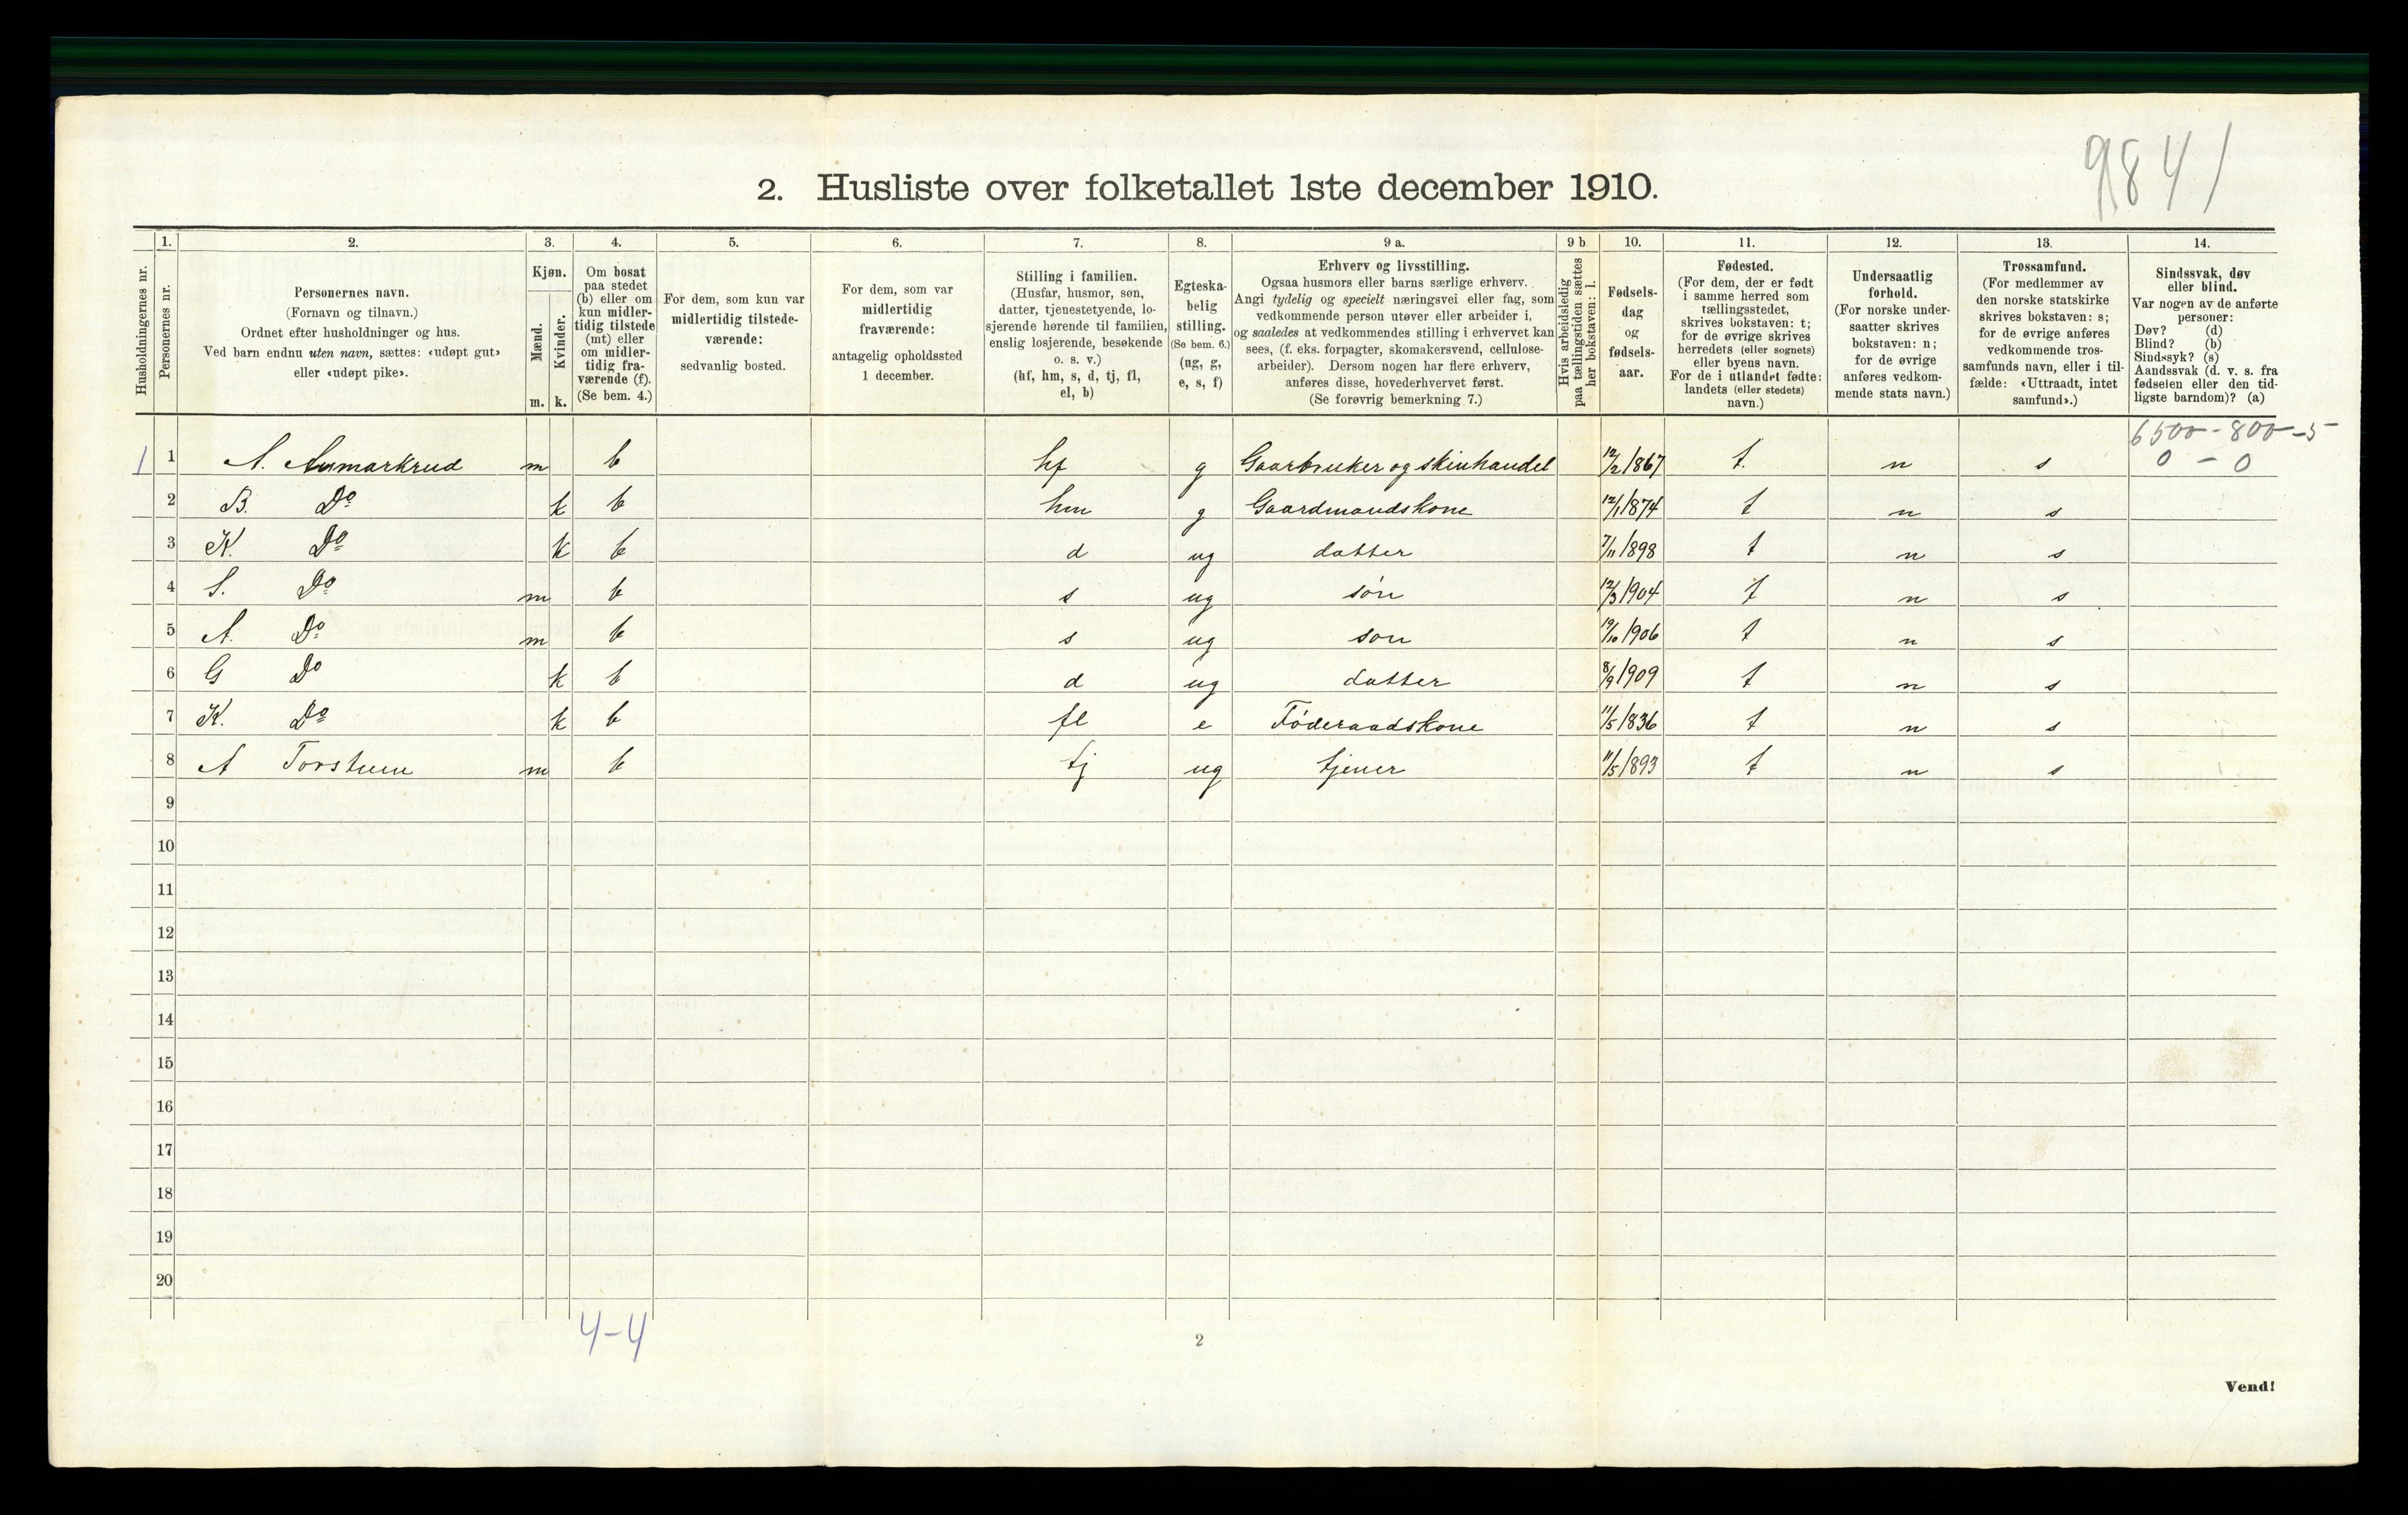 9841
2. Husliste over folketallet 1ste december 1910.
1. 2. 3. 4. 5. 6. 7. 8. 9 a. 9 b 10. 11. 12. 13. 14.
Husholdningernes nr.
Personernes nr.
Personernes navn.
(Fornavn og tilnavn.)
Ordnet efter husholdninger og hus.
Ved barn endnu uten navn, sættes: «udøpt gut»
eller «udøpt pike».
Kjøn.
Mænd.
m.
Kvinder.
k.
Om bosat
paa stedet
(b) eller om
kun midler-
tidig tilstede
(mt) eller
om midler-
tidig fra-
værende (f).
(Se bem. 4.)
For dem, som kun var
midlertidig tilstede-
værende:
sedvanlig bosted.
For dem, som var
midlertidig
fraværende:
antagelig opholdssted
1 december.
Stilling i familien.
(Husfar, husmor, søn,
datter, tjenestetyende, lo-
sjerende hørende til familien,
enslig losjerende, besøkende
o. s. v.)
(hf, hm, s, d, tj, fl,
el, b)
Egteska-
belig
stilling.
(Se bem. 6.)
(ug, g,
e, s, f)
Erhverv og livsstilling.
Ogsaa husmors eller barns særlige erhverv.
Angi tydelig og specielt næringsvei eller fag, som
vedkommende person utøver eller arbeider i,
og saaledes at vedkommendes stilling i erhvervet kan
sees, (f. eks. forpagter, skomakersvend, cellulose-
arbeider). Dersom nogen har flere erhverv,
anføres disse, hovederhvervet først.
(Se forøvrig bemerkning 7.)
Hvis arbeidsledig
paa tællingstiden sættes
her bokstaven: l.
Fødsels-
dag
og
fødsels-
aar.
Fødested.
(For dem, der er født
i samme herred som
tællingsstedet,
skrives bokstaven: t;
for de øvrige skrives
herredets (eller sognets)
eller byens navn.
For de i utlandet fødte:
landets (eller stedets)
navn.)
Undersaatlig
forhold.
(For norske under-
saatter skrives
bokstaven: n;
for de øvrige
anføres vedkom-
mende stats navn.)
Trossamfund.
(For medlemmer av
den norske statskirke
skrives bokstaven: s;
for de øvrige anføres
vedkommende tros-
samfunds navn, eller i til-
fælde: «Uttraadt, intet
samfund».)
Sindssvak, døv
eller blind.
Var nogen av de anførte
personer:
Døv? (d)
Blind? (b)
Sindssyk? (s)
Aandssvak (d. v. s. fra
fødselen eller den tid-
ligste barndom)? (a)
6500 - 800 - 5
0 - 0
1 1 A. Aamarkrud m b hf g Gaarbruker og skinhandel 12/2 1867 t. n s
2 B. Do k b hm g Gaardmandskone 12/1 1874 t n s
3 K. Do k b d ug datter 7/11 1898 t n s
4 S. Do m b s ug søn 12/3 1904 t n s
5 A. Do m b s ug søn 19/10 1906 t n s
6 G Do k b d ug datter 8/9 1909 t n s
7 K. Do k b fl e Føderaadskone 11/5 1836 t n s
8 A m b tj ug tjener 11/5 1893 t n s
9
10
11
12
13
14
15
16
17
18
19
20
4-4
2
Vend!